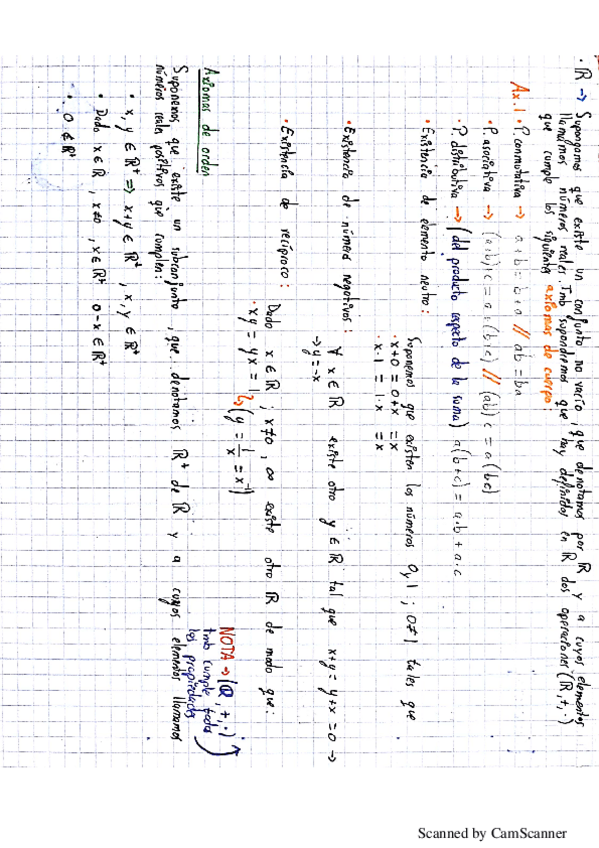 · ℝ → Supongamos que existe un conjunto no vacío, que denotamos por ℝ y a cuyos elementos
llamamos números reales. Tmb supondremos que hay definidos en ℝ dos operaciones (ℝ, +, ·)
que cumple los siguientes axiomas de cuerpo:
Ax.1 · P. conmutativa → a+b = b+a // ab = ba
· P. asociativa → (a+b)+c = a+(b+c) // (ab)c = a(bc)
· P. distributiva → (del producto respecto de la suma) a(b+c) = a·b + a·c
· Existencia de elemento neutro:
Suponemos que existen los números 0 y 1 ; 0≠1 tales que
· x+0 = 0+x = x
· x·1 = 1·x = x
· Existencia de números negativos:
∀ x ∈ ℝ existe otro y ∈ ℝ tal que x+y = y+x = 0 →
→ y = -x
· Existencia de recíproco:
Dado x ∈ ℝ ; x≠0, existe otro ℝ de modo que:
· xy = yx = 1 ↳ (y = 1/x = x⁻¹)
NOTA → (ℚ, +, ·)
tmb cumple todas
las propiedades
Axiomas de orden
Suponemos que existe un subconjunto, que denotamos ℝ⁺ de ℝ y a cuyos elementos llamamos
números reales positivos que cumplen:
· x, y ∈ ℝ⁺ ⇒ x+y ∈ ℝ⁺, x, y ∈ ℝ⁺
· Dado x ∈ ℝ, x≠0, x ∈ ℝ⁺ o -x ∈ ℝ⁺
· 0 ∉ ℝ⁺
Scanned by CamScanner